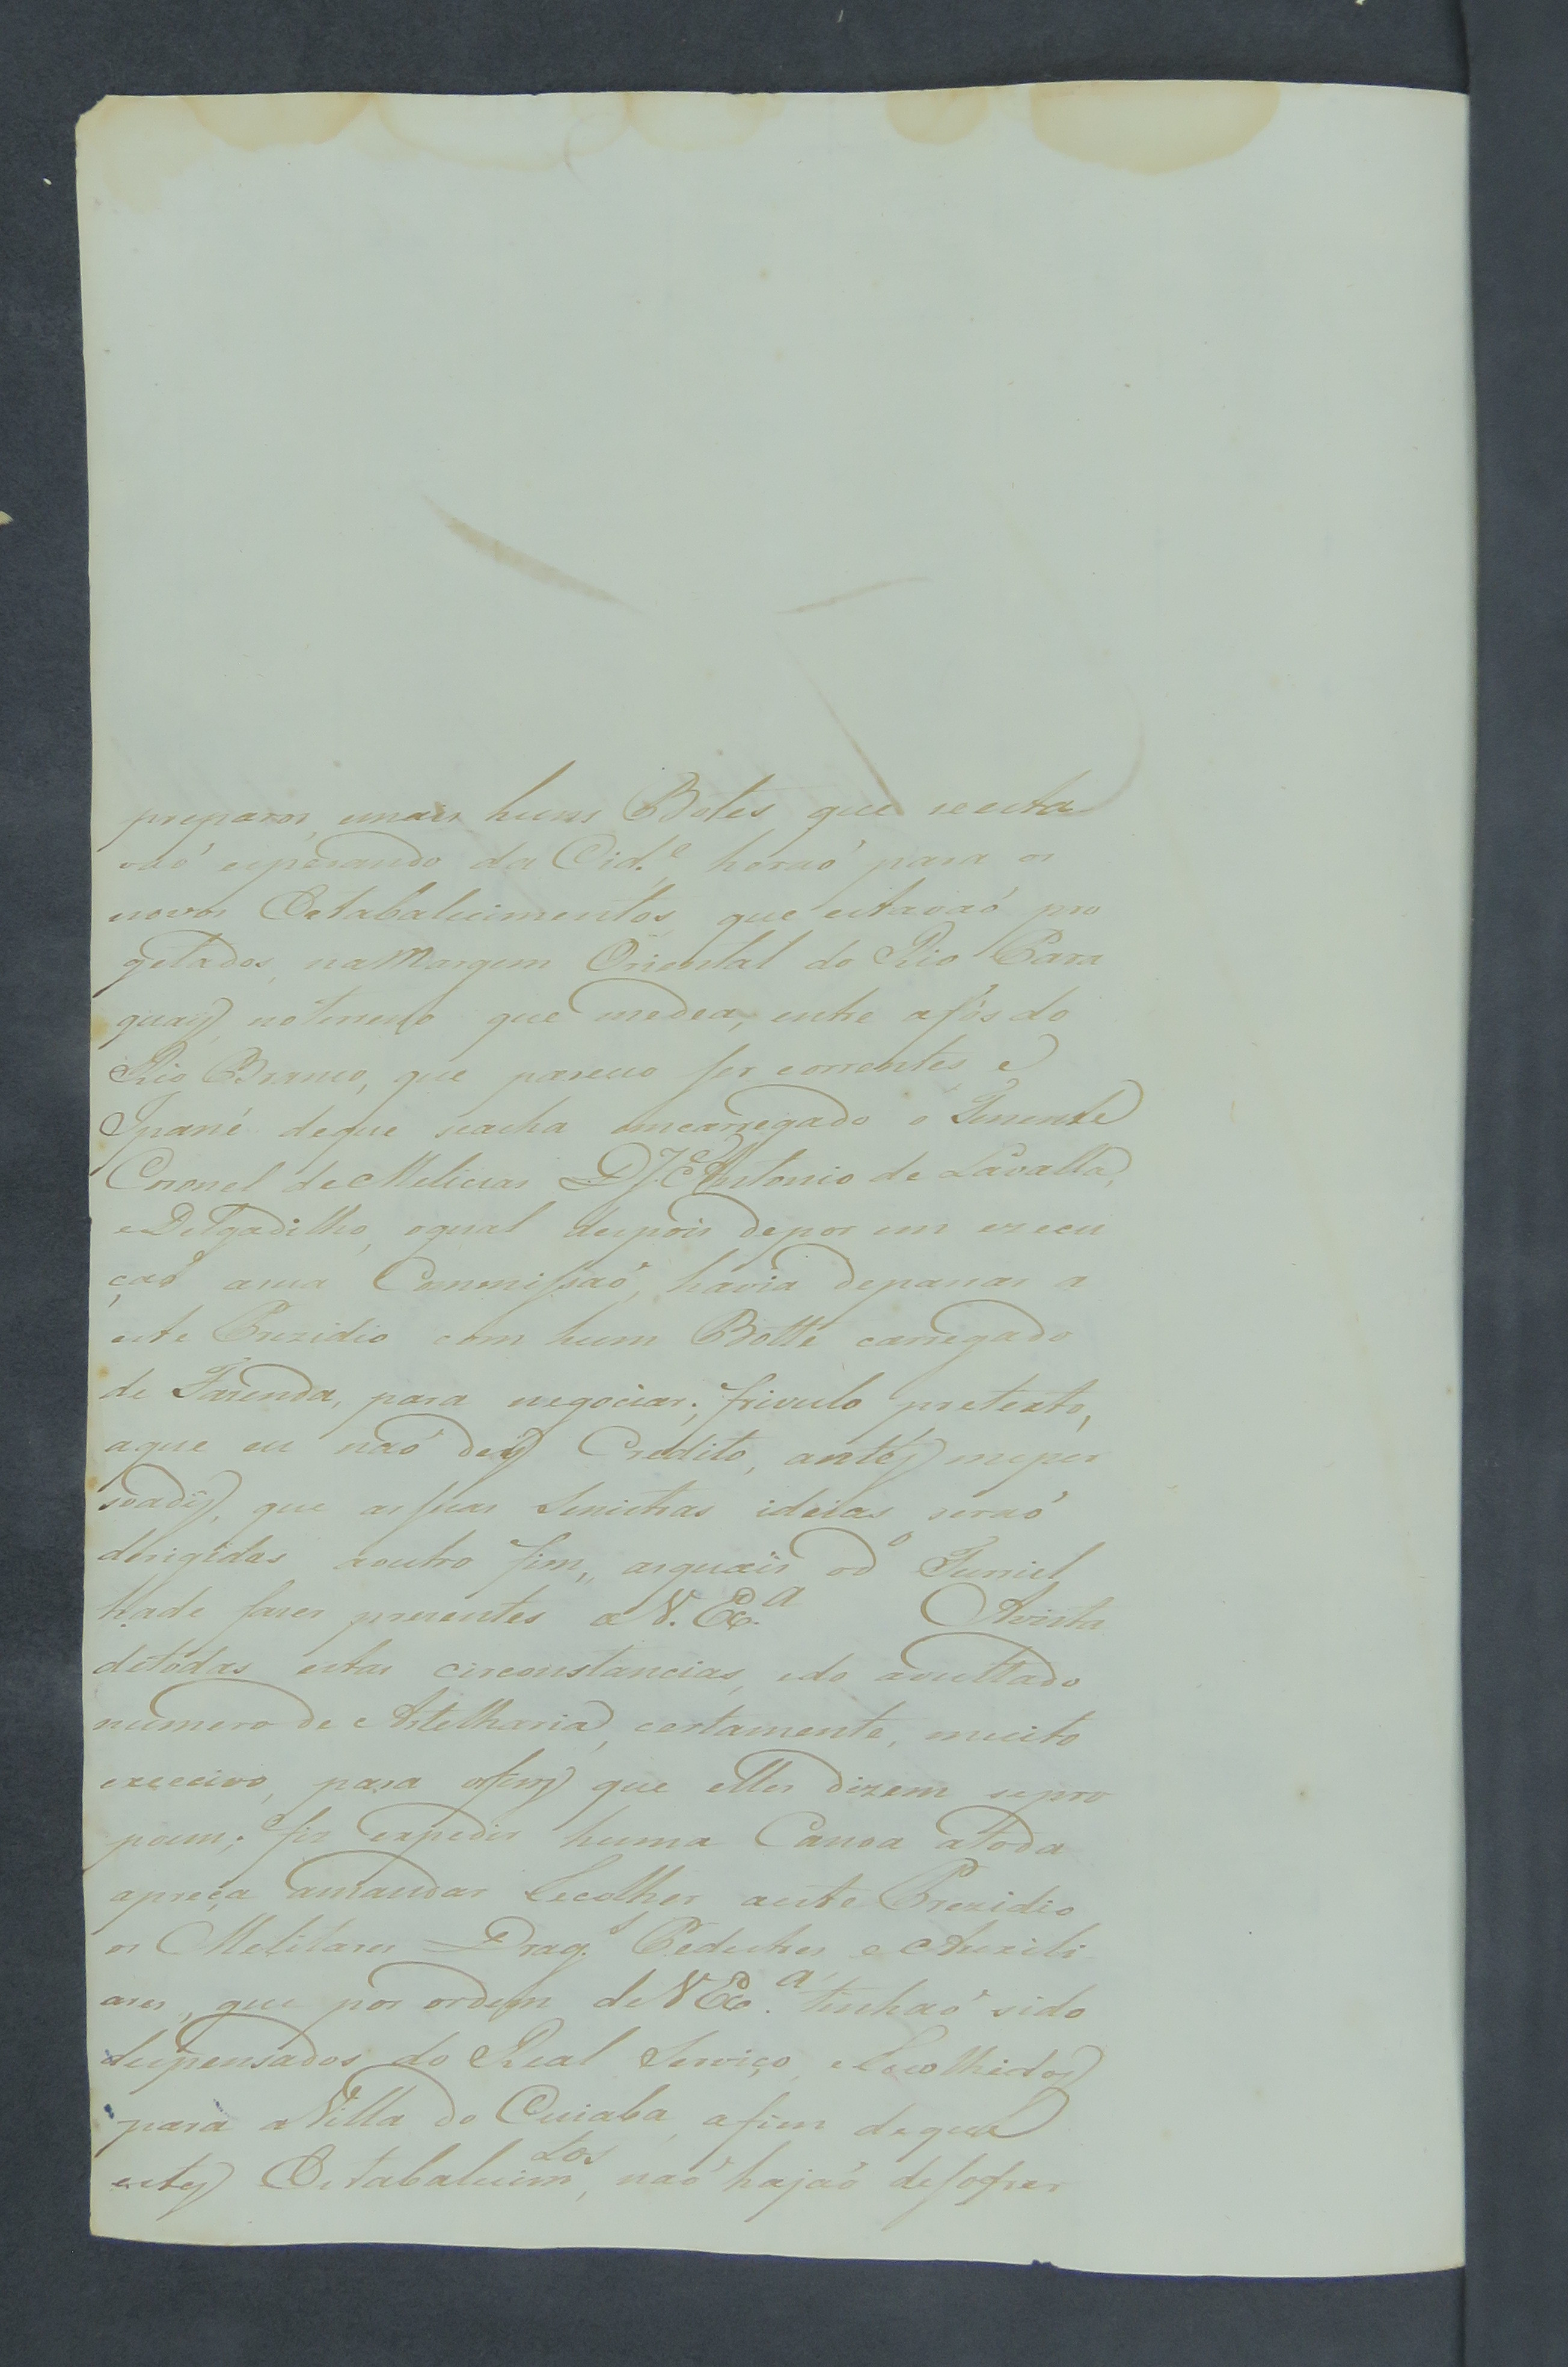 preparos, emais huns Botes que seesta
vaõ esperando da Cid.e, heraõ para os
novos Estabalecimentos, que estavaõ pro
getados, na Margem Oriental do Rio Para
guay, noterreno que medea, entre afós do
Rio Branco, que pareceo ser correntes, e
Ipané deque seacha emcarregado o Tenente
Coronel de Melicias D. J.e Antonio de Lavalla,
e Delgadilho, oqual despois depor em execu
çaõ asua Commissaõ, havia depassar a
este Prezidio com hum Botte carregado
de Fazenda, para negociar; frivulo pretexto,
aque eu naõ dey Credito, antes meper
soady, que assuas Senistras ideias seraõ
derigidas aoutro fim, asquais od.o Furriel
hade fazer prezentes a V. Ex.a Avista
detodas estas circonstancias, edo avultado
numero de Artelharia, certamente, muito
excecivo, para ofim que elles dizem sepro
poem; fiz expedir huma Canoa atoda
apreça amandar Recolher aeste Prezidio
os Melitares Drag.s Pedestres e Auxili
ares, que por ordem de V Ex.a tinhaõ sido
despensados do Real Serviço, e Recolhidos
para a Villa do Cuiaba, afim deque
estes Estabalecim.tos, naõ hajaõ desofrer